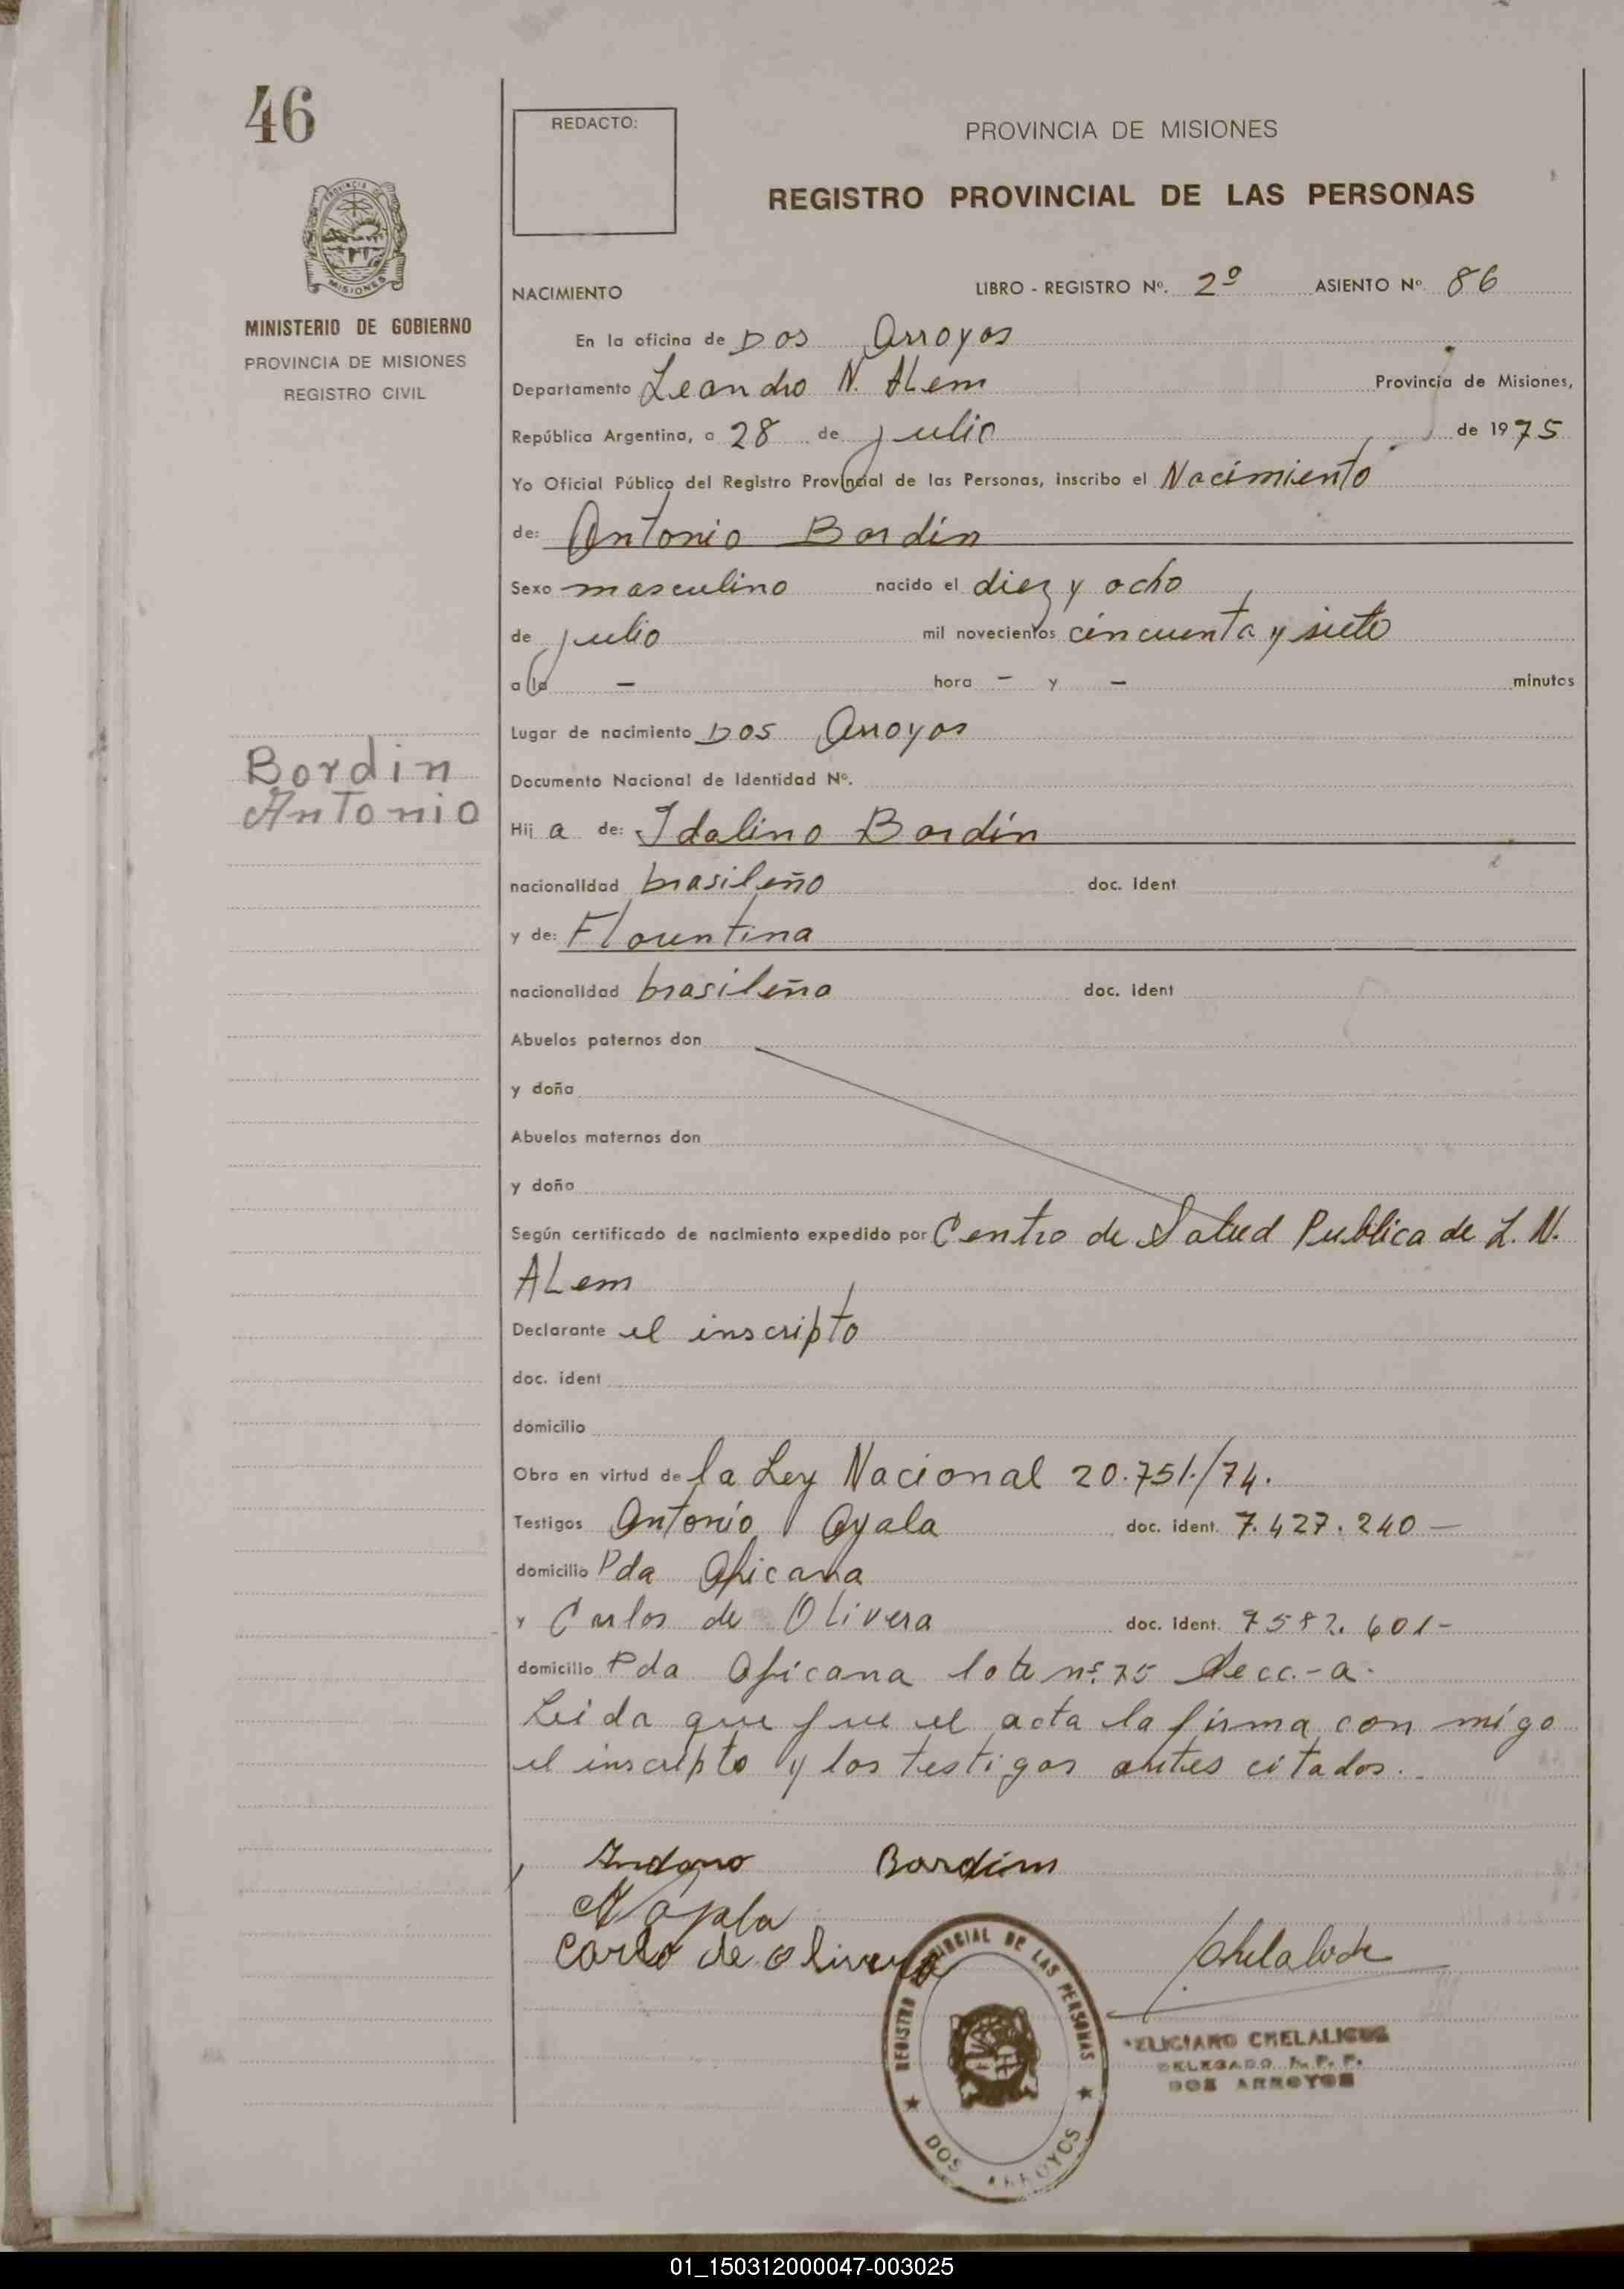 46
REDACTO:
PROVINCIA DE MISIONES
REGISTRO PROVINCIAL DE LAS PERSONAS
MISIONES
MINISTERIO DE GOBIERNO
PROVINCIA DE MISIONES
REGISTRO CIVIL
NACIMIENTO LIBRO - REGISTRO Nº. 2º ASIENTO Nº 86
En la oficina de Dos Arroyos
Departamento Leandro N. ALem Provincia de Misiones,
República Argentina, a 28 de julio de 1975
Yo Oficial Público del Registro Provincial de las Personas, inscribo el Nacimiento
de: Antonio Bordin
Sexo masculino nacido el diez y ocho
de julio mil novecientos cincuenta y siete
a la - hora - y - minutos
Lugar de nacimiento Dos Arroyos
Bordin
Antonio
Documento Nacional de Identidad Nº.
Hij a de: Idalino Bordin
nacionalidad brasileño doc. ident
y de: Florentina
nacionalidad brasileña doc. ident
Abuelos paternos don
y doña
Abuelos maternos don
y doña
Según certificado de nacimiento expedido por Centro de Salud Publica de L. N.
ALem
Declarante el inscripto
doc. ident
domicilio
Obra en virtud de la Ley Nacional 20.751./74.
Testigos Antonio Ayala doc. ident. 7.427.240 -
domicilio Pda Africana
y Carlos de OLivera doc. ident. 7582.601-
domicilio Pda Africana lote nº 75 Secc.-a.
Leida que fue el acta la firma con migo
el inscripto y los testigos antes citados.
Bordim
Carlo de olivera
REGISTRO PROVINCIAL DE LAS PERSONAS
DOS ARROYOS
FELICIANO CHELALICHE
DELEGADO R. P. P.
DOS ARROYOS
01_150312000047-003025